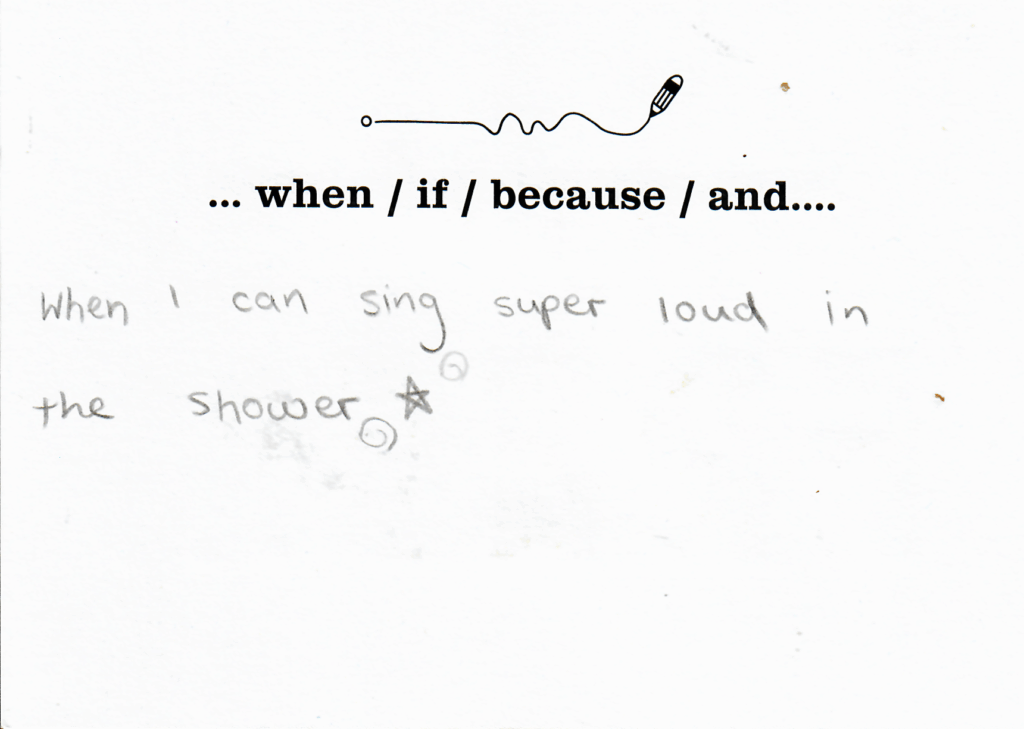 ... when / if / because / and....
When I can sing super loud in
the shower